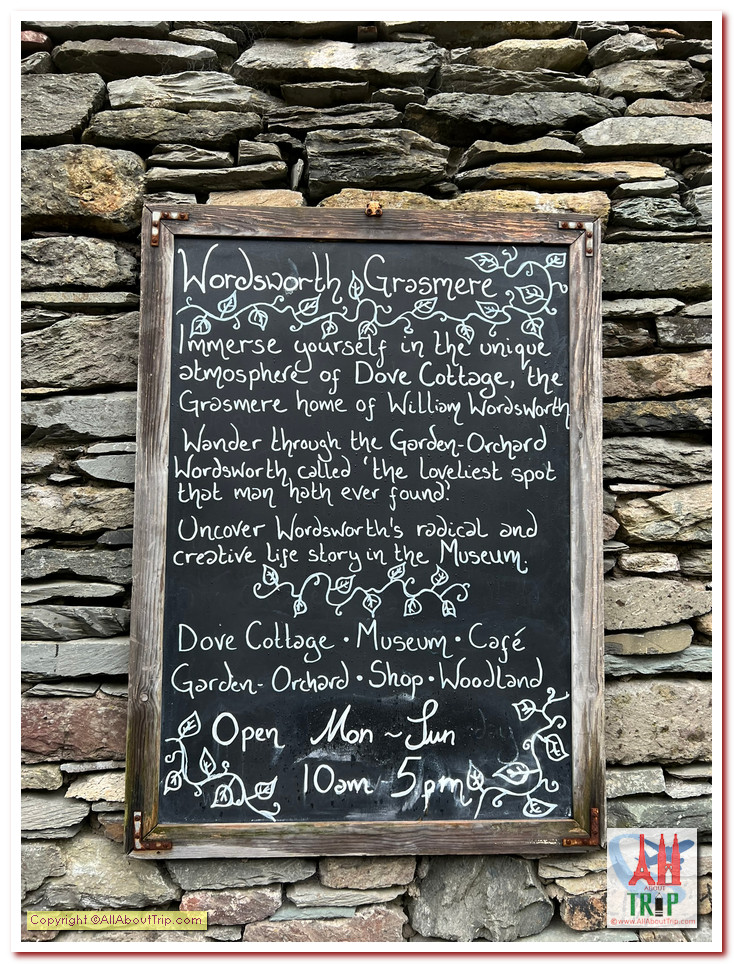 Wordsworth Grasmere
Immerse yourself in the unique
atmosphere of Dove Cottage, the
Grasmere home of William Wordsworth
Wander through the Garden-Orchard
Wordsworth called 'the loveliest spot
that man hath ever found.'
Uncover Wordsworth's radical and
creative life story in the Museum.
Dove Cottage · Museum · Café
Garden-Orchard · Shop · Woodland
Open Mon ~ Sun
10am - 5pm
Copyright ©AllAboutTrip.com
All
ABOUT
TRIP
©www.AllAboutTrip.com